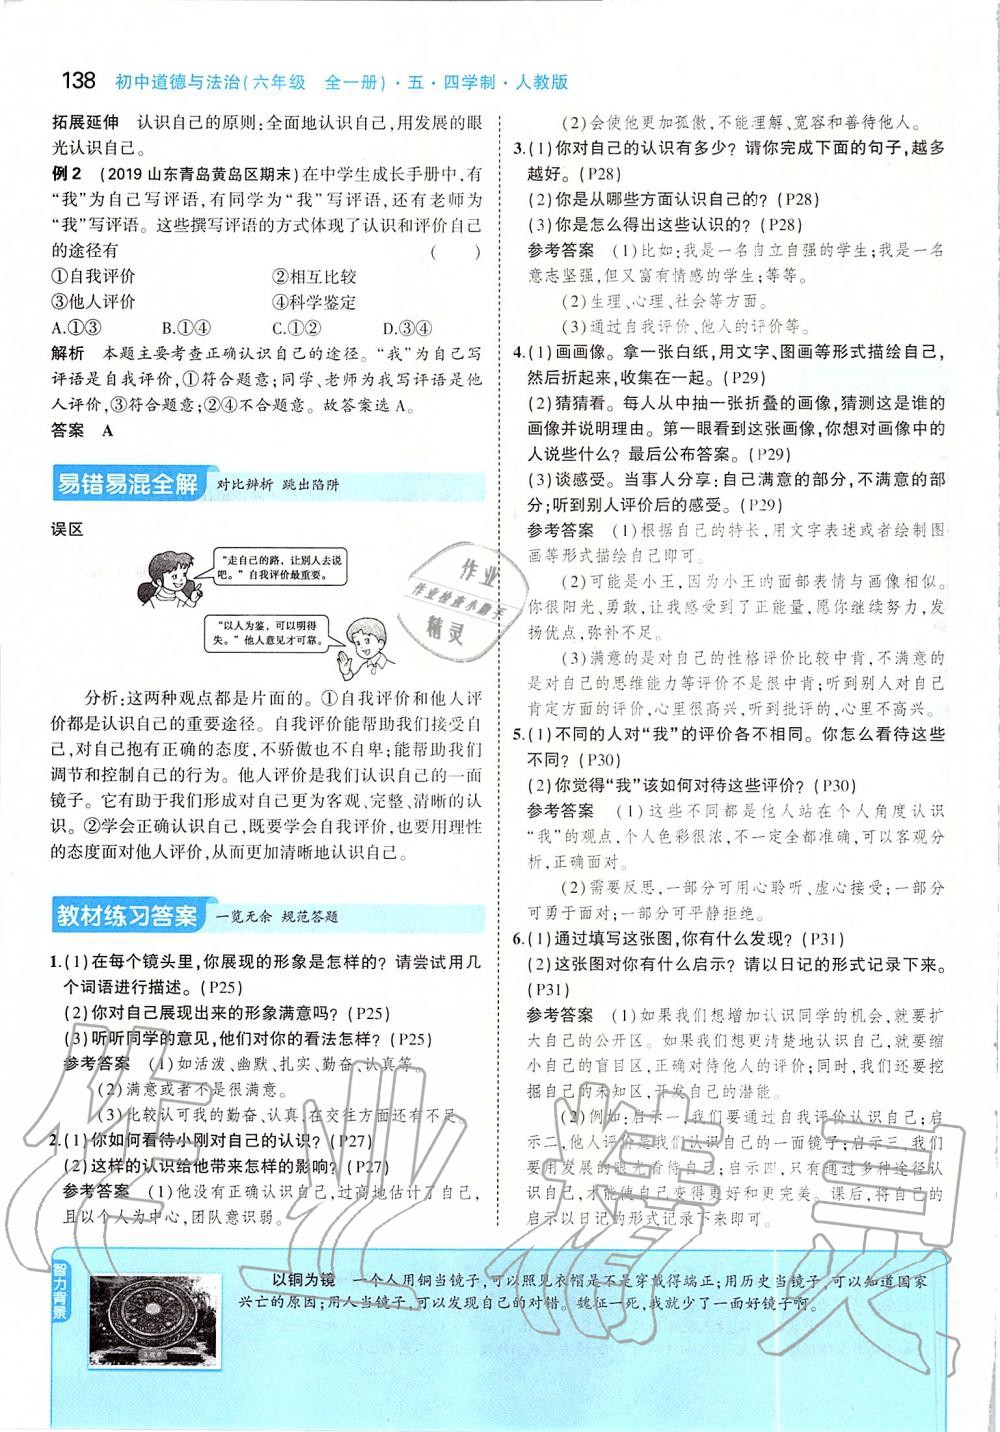 138 初中道德与法治(六年级 全一册)·五·四学制·人教版
拓展延伸 认识自己的原则:全面地认识自己,用发展的眼
光认识自己。
例2 (2019山东青岛黄岛区期末)在中学生成长手册中,有
“我”为自己写评语,有同学为“我”写评语,还有老师为
“我”写评语。这些撰写评语的方式体现了认识和评价自己
的途径有 ( )
①自我评价 ②相互比较
③他人评价 ④科学鉴定
A.①③ B.①④ C.①② D.③④
解析 本题主要考查正确认识自己的途径。“我”为自己写
评语是自我评价,①符合题意;同学、老师为我写评语是他
人评价,③符合题意;②④不合题意。故答案选A。
答案 A
易错易混全解 对比辨析 跳出陷阱
误区
“走自己的路,让别人去说
吧。”自我评价最重要。
“以人为鉴,可以明得
失。”他人意见才可靠。
分析:这两种观点都是片面的。①自我评价和他人评
价都是认识自己的重要途径。自我评价能帮助我们接受自
己,对自己抱有正确的态度,不骄傲也不自卑;能帮助我们
调节和控制自己的行为。他人评价是我们认识自己的一面
镜子。它有助于我们形成对自己更为客观、完整、清晰的认
识。②学会正确认识自己,既要学会自我评价,也要用理性
的态度面对他人评价,从而更加清晰地认识自己。
教材练习答案 一览无余 规范答题
1.(1)在每个镜头里,你展现的形象是怎样的?请尝试用几
个词语进行描述。(P25)
(2)你对自己展现出来的形象满意吗?(P25)
(3)听听同学的意见,他们对你的看法怎样?(P25)
参考答案 (1)如活泼、幽默、扎实、勤奋、认真等。
(2)满意或者不是很满意。
(3)比较认可我的勤奋、认真,在交往方面还有不足。
2.(1)你如何看待小刚对自己的认识?(P27)
(2)这样的认识给他带来怎样的影响?(P27)
参考答案 (1)他没有正确认识自己,过高地估计了自己,
且以个人为中心,团队意识弱。
(2)会使他更加孤傲,不能理解、宽容和善待他人。
3.(1)你对自己的认识有多少?请你完成下面的句子,越多
越好。(P28)
(2)你是从哪些方面认识自己的?(P28)
(3)你是怎么得出这些认识的?(P28)
参考答案 (1)比如:我是一名自立自强的学生;我是一名
意志坚强,但又富有情感的学生;等等。
(2)生理、心理、社会等方面。
(3)通过自我评价、他人的评价等。
4.(1)画画像。拿一张白纸,用文字、图画等形式描绘自己,
然后折起来,收集在一起。(P29)
(2)猜猜看。每人从中抽一张折叠的画像,猜测这是谁的
画像并说明理由。第一眼看到这张画像,你想对画像中的
人说些什么?最后公布答案。(P29)
(3)谈感受。当事人分享:自己满意的部分,不满意的部
分;听到别人评价后的感受。(P29)
参考答案 (1)根据自己的特长,用文字表述或者绘制图
画等形式描绘自己即可。
(2)可能是小王,因为小王的面部表情与画像相似。
你很阳光、勇敢,让我感受到了正能量,愿你继续努力,发
扬优点,弥补不足。
(3)满意的是对自己的性格评价比较中肯,不满意的
是对自己的思维能力等评价不是很中肯;听到别人对自己
肯定方面的评价,心里很高兴,听到批评的,心里不高兴。
5.(1)不同的人对“我”的评价各不相同。你怎么看待这些
不同?(P30)
(2)你觉得“我”该如何对待这些评价?(P30)
参考答案 (1)这些不同都是他人站在个人角度认识
“我”的观点,个人色彩很浓,不一定全都准确,可以客观分
析,正确面对。
(2)需要反思,一部分可用心聆听、虚心接受;一部分
可勇于面对;一部分可平静拒绝。
6.(1)通过填写这张图,你有什么发现?(P31)
(2)这张图对你有什么启示?请以日记的形式记录下来。
(P31)
参考答案 (1)如果我们想增加认识同学的机会,就要扩
大自己的公开区。如果我们想更清楚地认识自己,就要缩
小自己的盲目区,正确对待他人的评价;同时,我们还要挖
掘自己的未知区,开发自己的潜能。
(2)例如:启示一,我们要通过自我评价认识自己;启
示二,他人评价是我们认识自己的一面镜子;启示三,我们
要用发展的眼光看待自己;启示四,只有通过多种途径认
识自己,才能使自己变得更好和更完美。课后,将自己的
启示以日记的形式记录下来即可。
智力背景
以铜为镜 一个人用铜当镜子,可以照见衣帽是不是穿戴得端正;用历史当镜子,可以知道国家
兴亡的原因;用人当镜子,可以发现自己的对错。魏征一死,我就少了一面好镜子啊。
作业
作业检查小助手
精灵
作业精灵